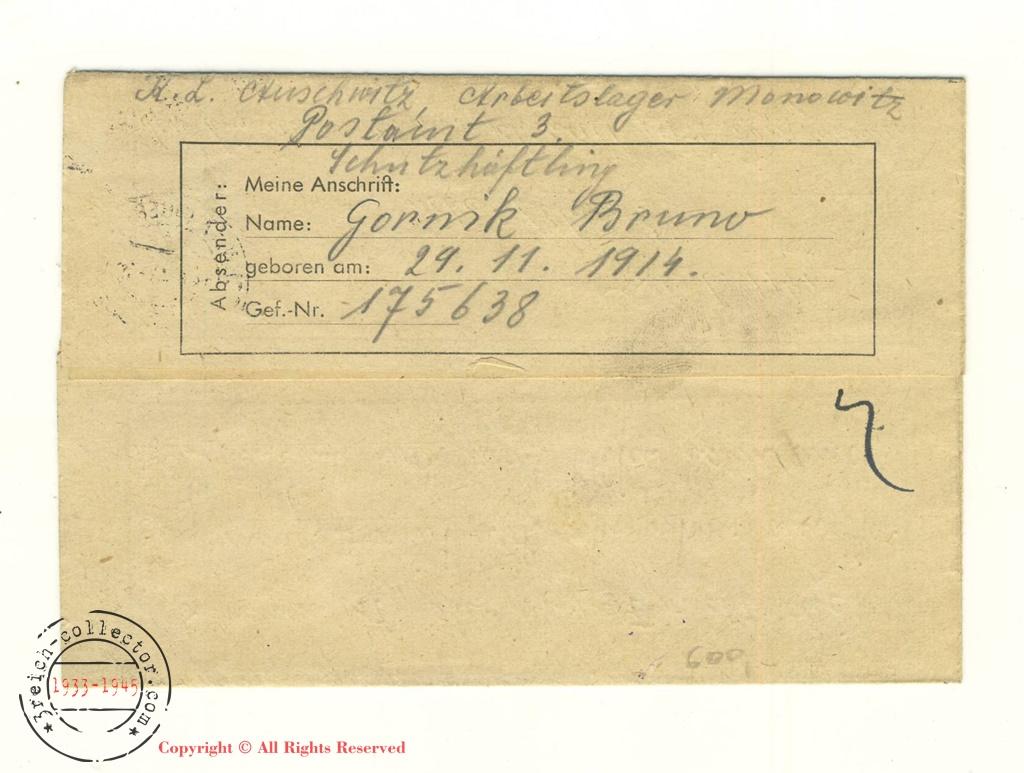 K.L. Auschwitz, Arbeitslager Monowitz
Postamt 3.
Schutzhäftling
Absender:
Meine Anschrift:
Name: Gornik Bruno
geboren am: 29. 11. 1914.
Gef.-Nr. 175638
600
3reich-collector.com
1933-1945
Copyright © All Rights Reserved